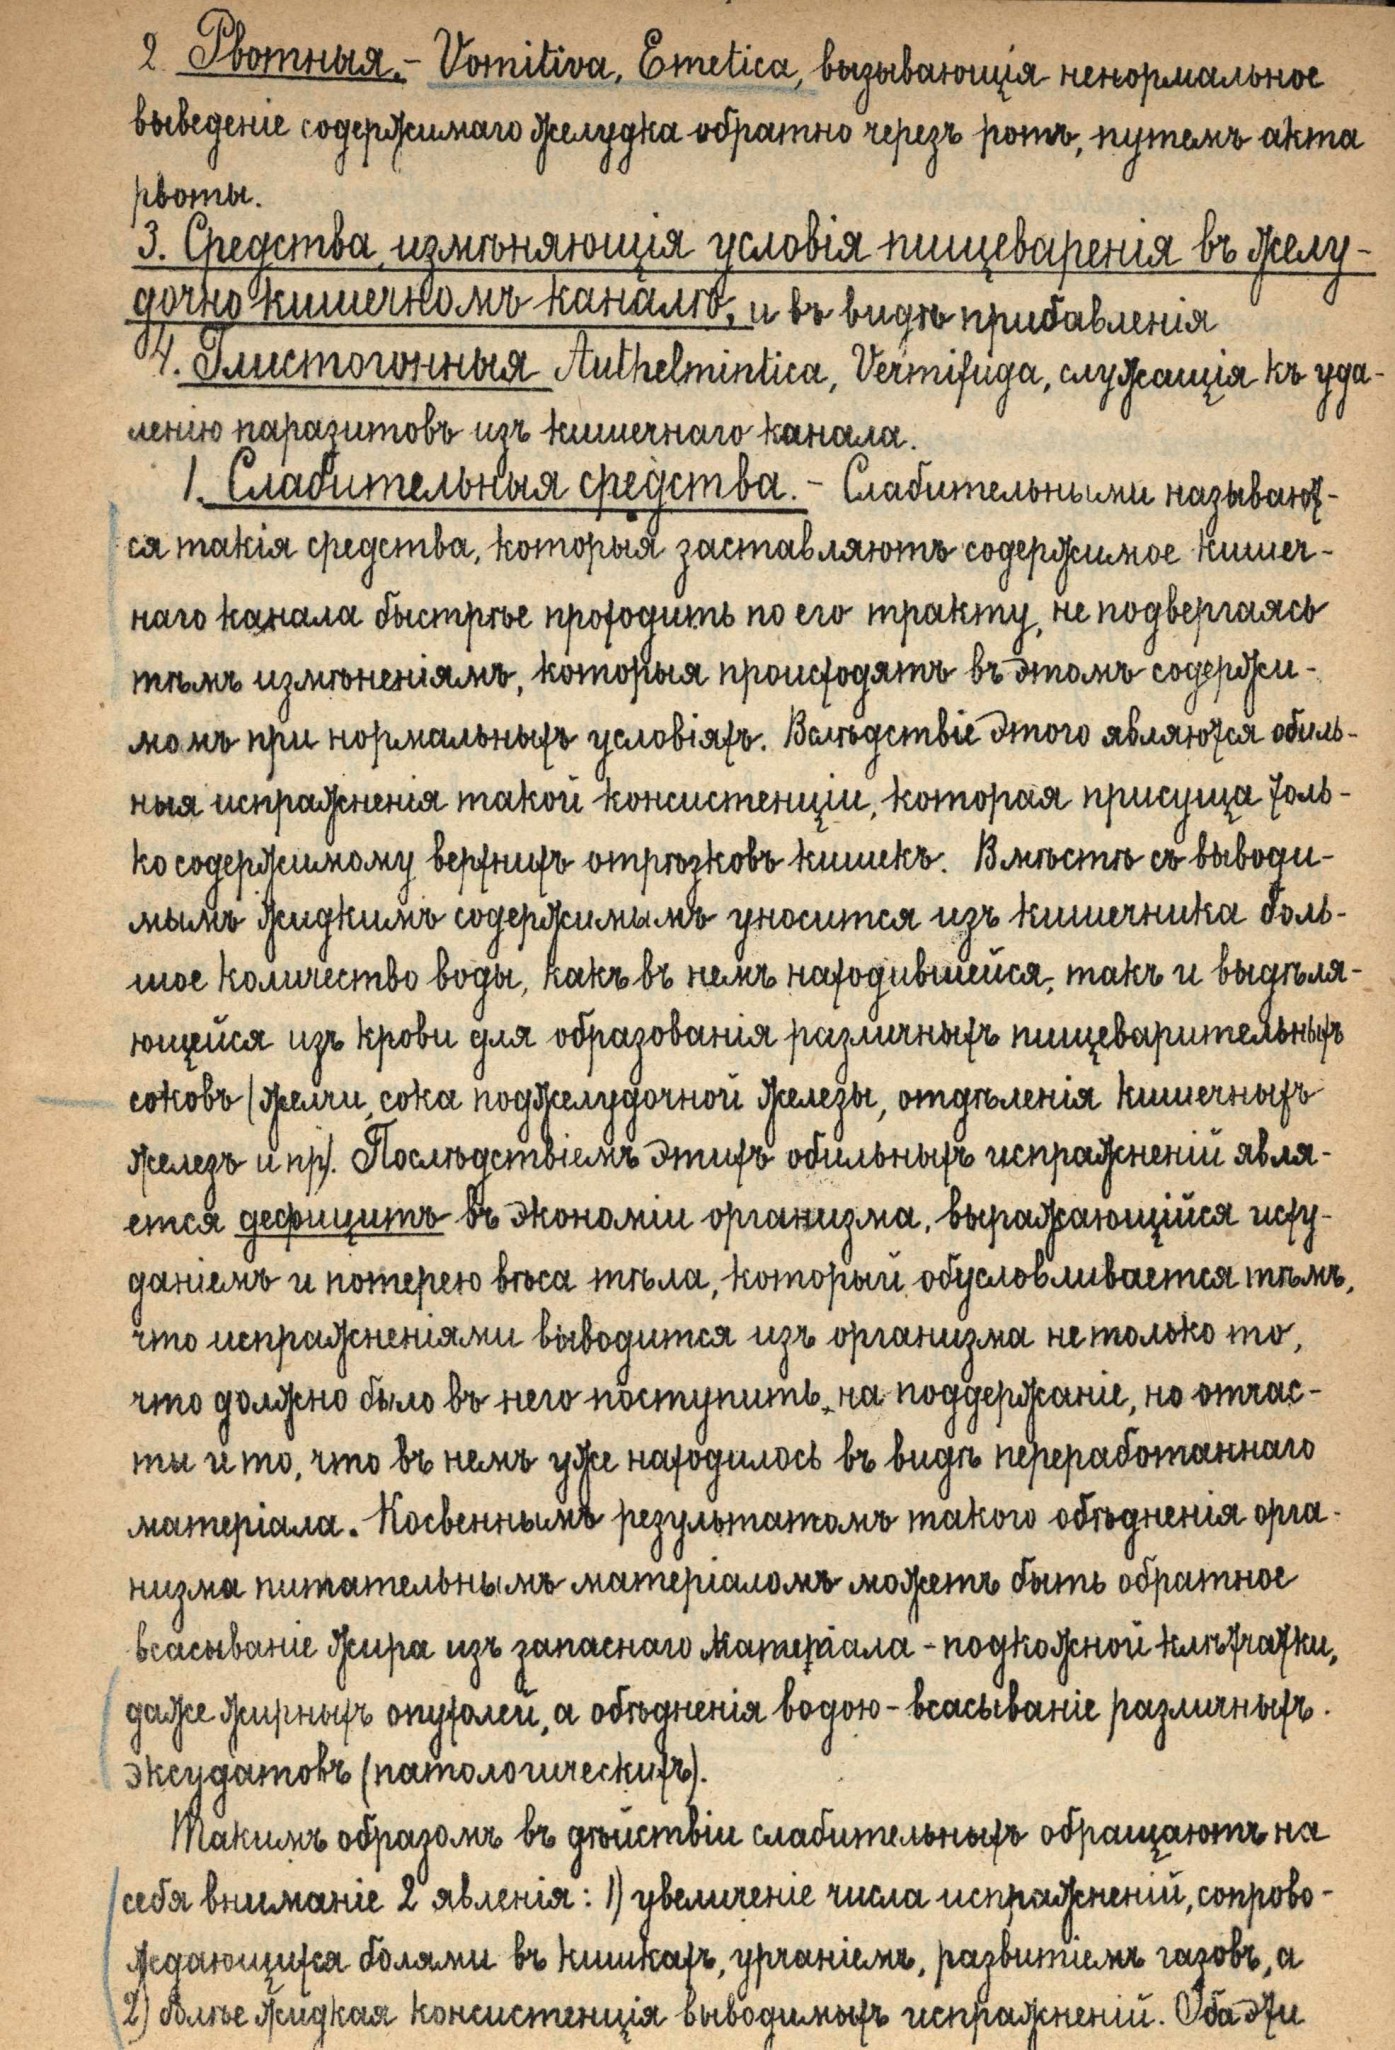 2. Рвотныя. – Vomitiva, Emetica, вызывающія ненормальное
выведеніе содержимаго желудка обратно черезъ ротъ, путемъ акта
рвоты.
3. Средства, измѣняющія условія пищеваренія въ желу-
дочно кишечномъ каналѣ, и въ видѣ прибавленія
4. Глистогонныя Anthelmintica, Vermifuga, служащія къ уда-
ленію паразитовъ изъ кишечнаго канала.
1. Слабительныя средства. – Слабительными называют-
ся такія средства, которыя заставляютъ содержимое кишеч-
наго канала быстрѣе проходить по его тракту, не подвергаясь
тѣмъ измѣненіямъ, которыя происходятъ въ этомъ содержи-
момъ при нормальныхъ условіяхъ. Вслѣдствіе этого являются обиль-
ныя испражненія такой консистенціи, которая присуща толь-
ко содержимому верхнихъ отрѣзковъ кишекъ. Вмѣстѣ съ выводи-
мымъ жидкимъ содержимымъ уносится изъ кишечника боль-
шое количество воды, какъ въ немъ находившейся, такъ и выдѣля-
ющейся изъ крови для образованія различныхъ пищеварительныхъ
соковъ (желчи, сока поджелудочной железы, отдѣленія кишечныхъ
железъ и пр). Послѣдствіемъ этихъ обильныхъ испражненій явля-
ется дефицитъ въ экономіи организма, выражающійся исху-
даніемъ и потерею вѣса тѣла, который обусловливается тѣмъ,
что испражненіями выводится изъ организма не только то,
что должно было въ него поступить, на поддержаніе, но отчас-
ти и то, что въ немъ уже находилось въ видѣ переработаннаго
матеріала. Косвеннымъ результатомъ такого обѣдненія орга-
низма питательнымъ матеріаломъ можетъ быть обратное
всасываніе жира изъ запаснаго матеріала – подкожной клѣтчатки,
даже жирныхъ опухолей, а обѣдненія водою – всасываніе различныхъ
эксудатовъ (патологическихъ).
Такимъ образомъ въ дѣйствіи слабительныхъ обращаютъ на
себя вниманіе 2 явленія: 1) увеличеніе числа испражненій, сопрово-
ждающихся болями въ кишкахъ, урчаніемъ, развитіемъ газовъ, а
2) болѣе жидкая консистенція выводимыхъ испражненій. Оба эти